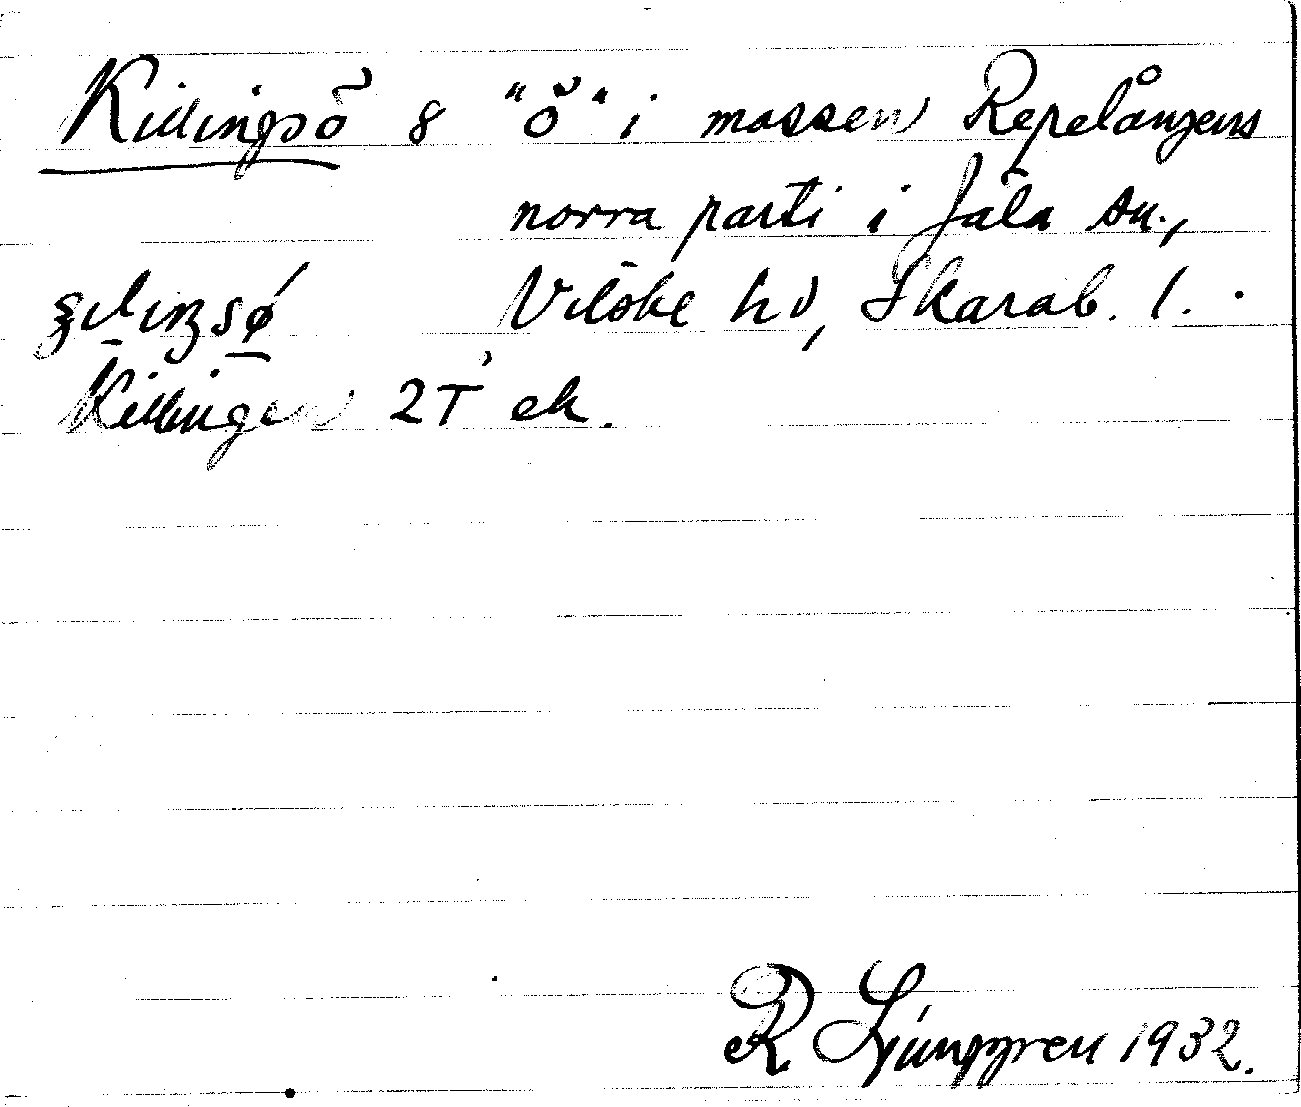 Killingsö 8 "ö" i mossen Repelångens
norra parti i Jäla sn.,
Vilske hd, Skarab. l.
Killingen 2T' ek.
R Ljunggren 1932.